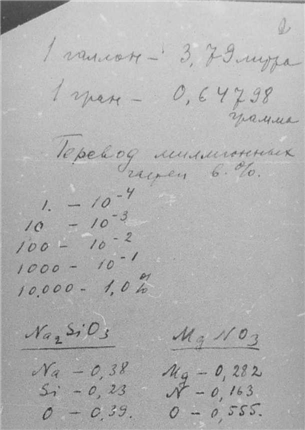 1 галлон – 3,79 литра
1 гран – 0,64798
грамма
Перевод миллионных
частей в %.
1. – 10⁻⁴
10 – 10⁻³
100 – 10⁻²
1000 – 10⁻¹
10,000 – 1,0%
Na₂SiO₃ Mg NO₃
Na – 0,38 Mg – 0,282
Si – 0,23 N – 0,163
O – 0,39. O – 0,555.